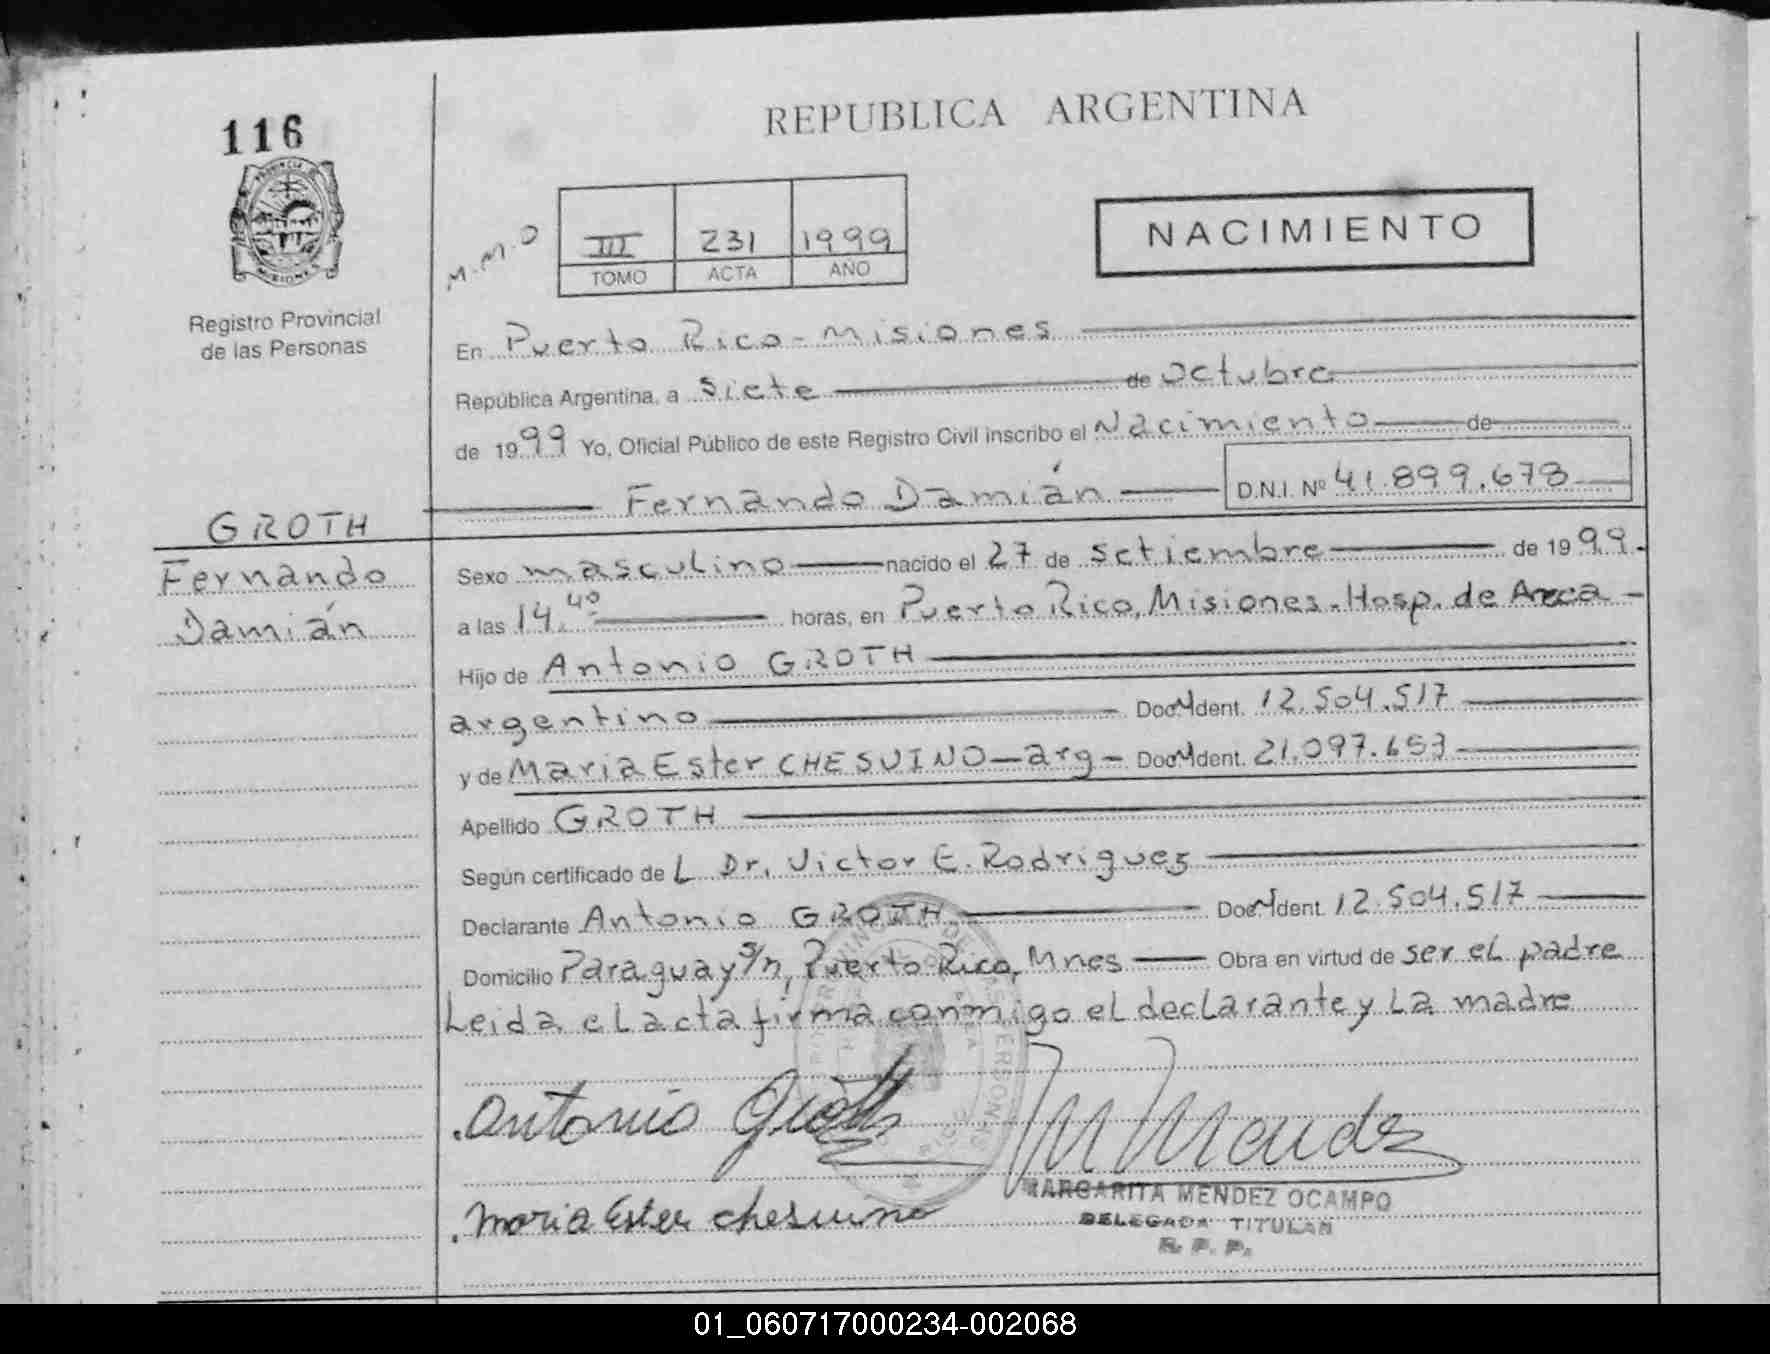 116
REPUBLICA ARGENTINA
M.M.O
III 231 1999
TOMO ACTA AÑO
NACIMIENTO
PROVINCIA DE MISIONES
Registro Provincial
de las Personas
En Puerto Rico - Misiones
República Argentina, a siete de octubre
de 1999 Yo, Oficial Público de este Registro Civil inscribo el Nacimiento de
Fernando Damián D.N.I. Nº 41.899.678
GROTH
Fernando
Damián
Sexo masculino nacido el 27 de setiembre de 1999.
a las 14.40 horas, en Puerto Rico, Misiones. Hosp. de Area
Hijo de Antonio GROTH
argentino Doc. Ident. 12.504.517
y de Maria Ester CHESUINO - arg - Doc. Ident. 21.097.653
Apellido GROTH
Según certificado de L Dr. Victor E. Rodriguez
Declarante Antonio GROTH Doc. Ident. 12.504.517
Domicilio Paraguay s/n, Puerto Rico, Mnes Obra en virtud de ser el padre
Leida el acta firma conmigo el declarante y la madre
Antonio Groth
M Mendez
MARGARITA MENDEZ OCAMPO
DELEGADA TITULAR
R. P. P.
Maria Ester Chesuino
01_060717000234-002068